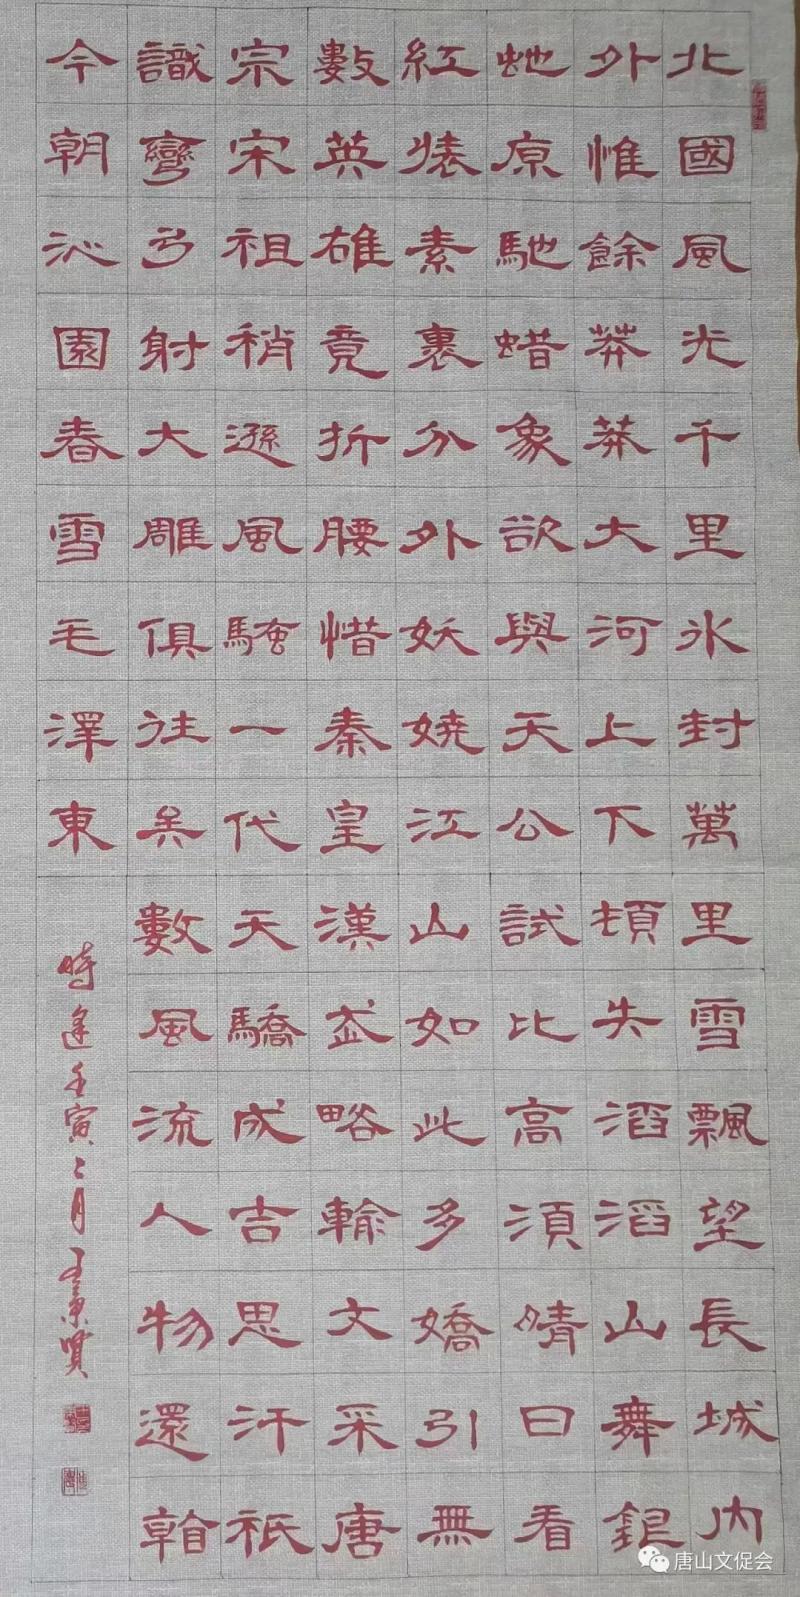 北國風光千里冰封萬里雪飄望長城内
外惟餘莽莽大河上下頓失滔滔山舞銀
虵原馳蜡象欲與天公試比高須晴日看
紅裝素裹分外妖嬈江山如此多嬌引無
數英雄竟折腰惜秦皇漢武略輸文采唐
宗宋祖稍遜風騷一代天驕成吉思汗祇
識彎弓射大雕俱往矣數風流人物還看
今朝沁園春雪毛澤東
時逢壬寅二月
唐山文促会